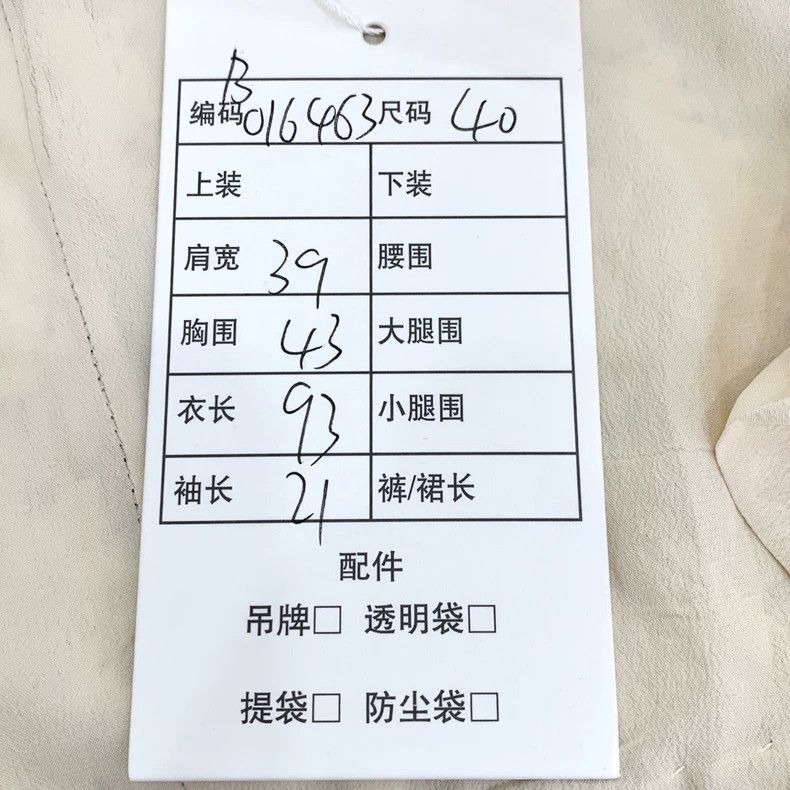 编码B016463 尺码 40
上装 下装
肩宽 39 腰围
胸围 43 大腿围
衣长 93 小腿围
袖长 21 裤/裙长
配件
吊牌□ 透明袋□
提袋□ 防尘袋□